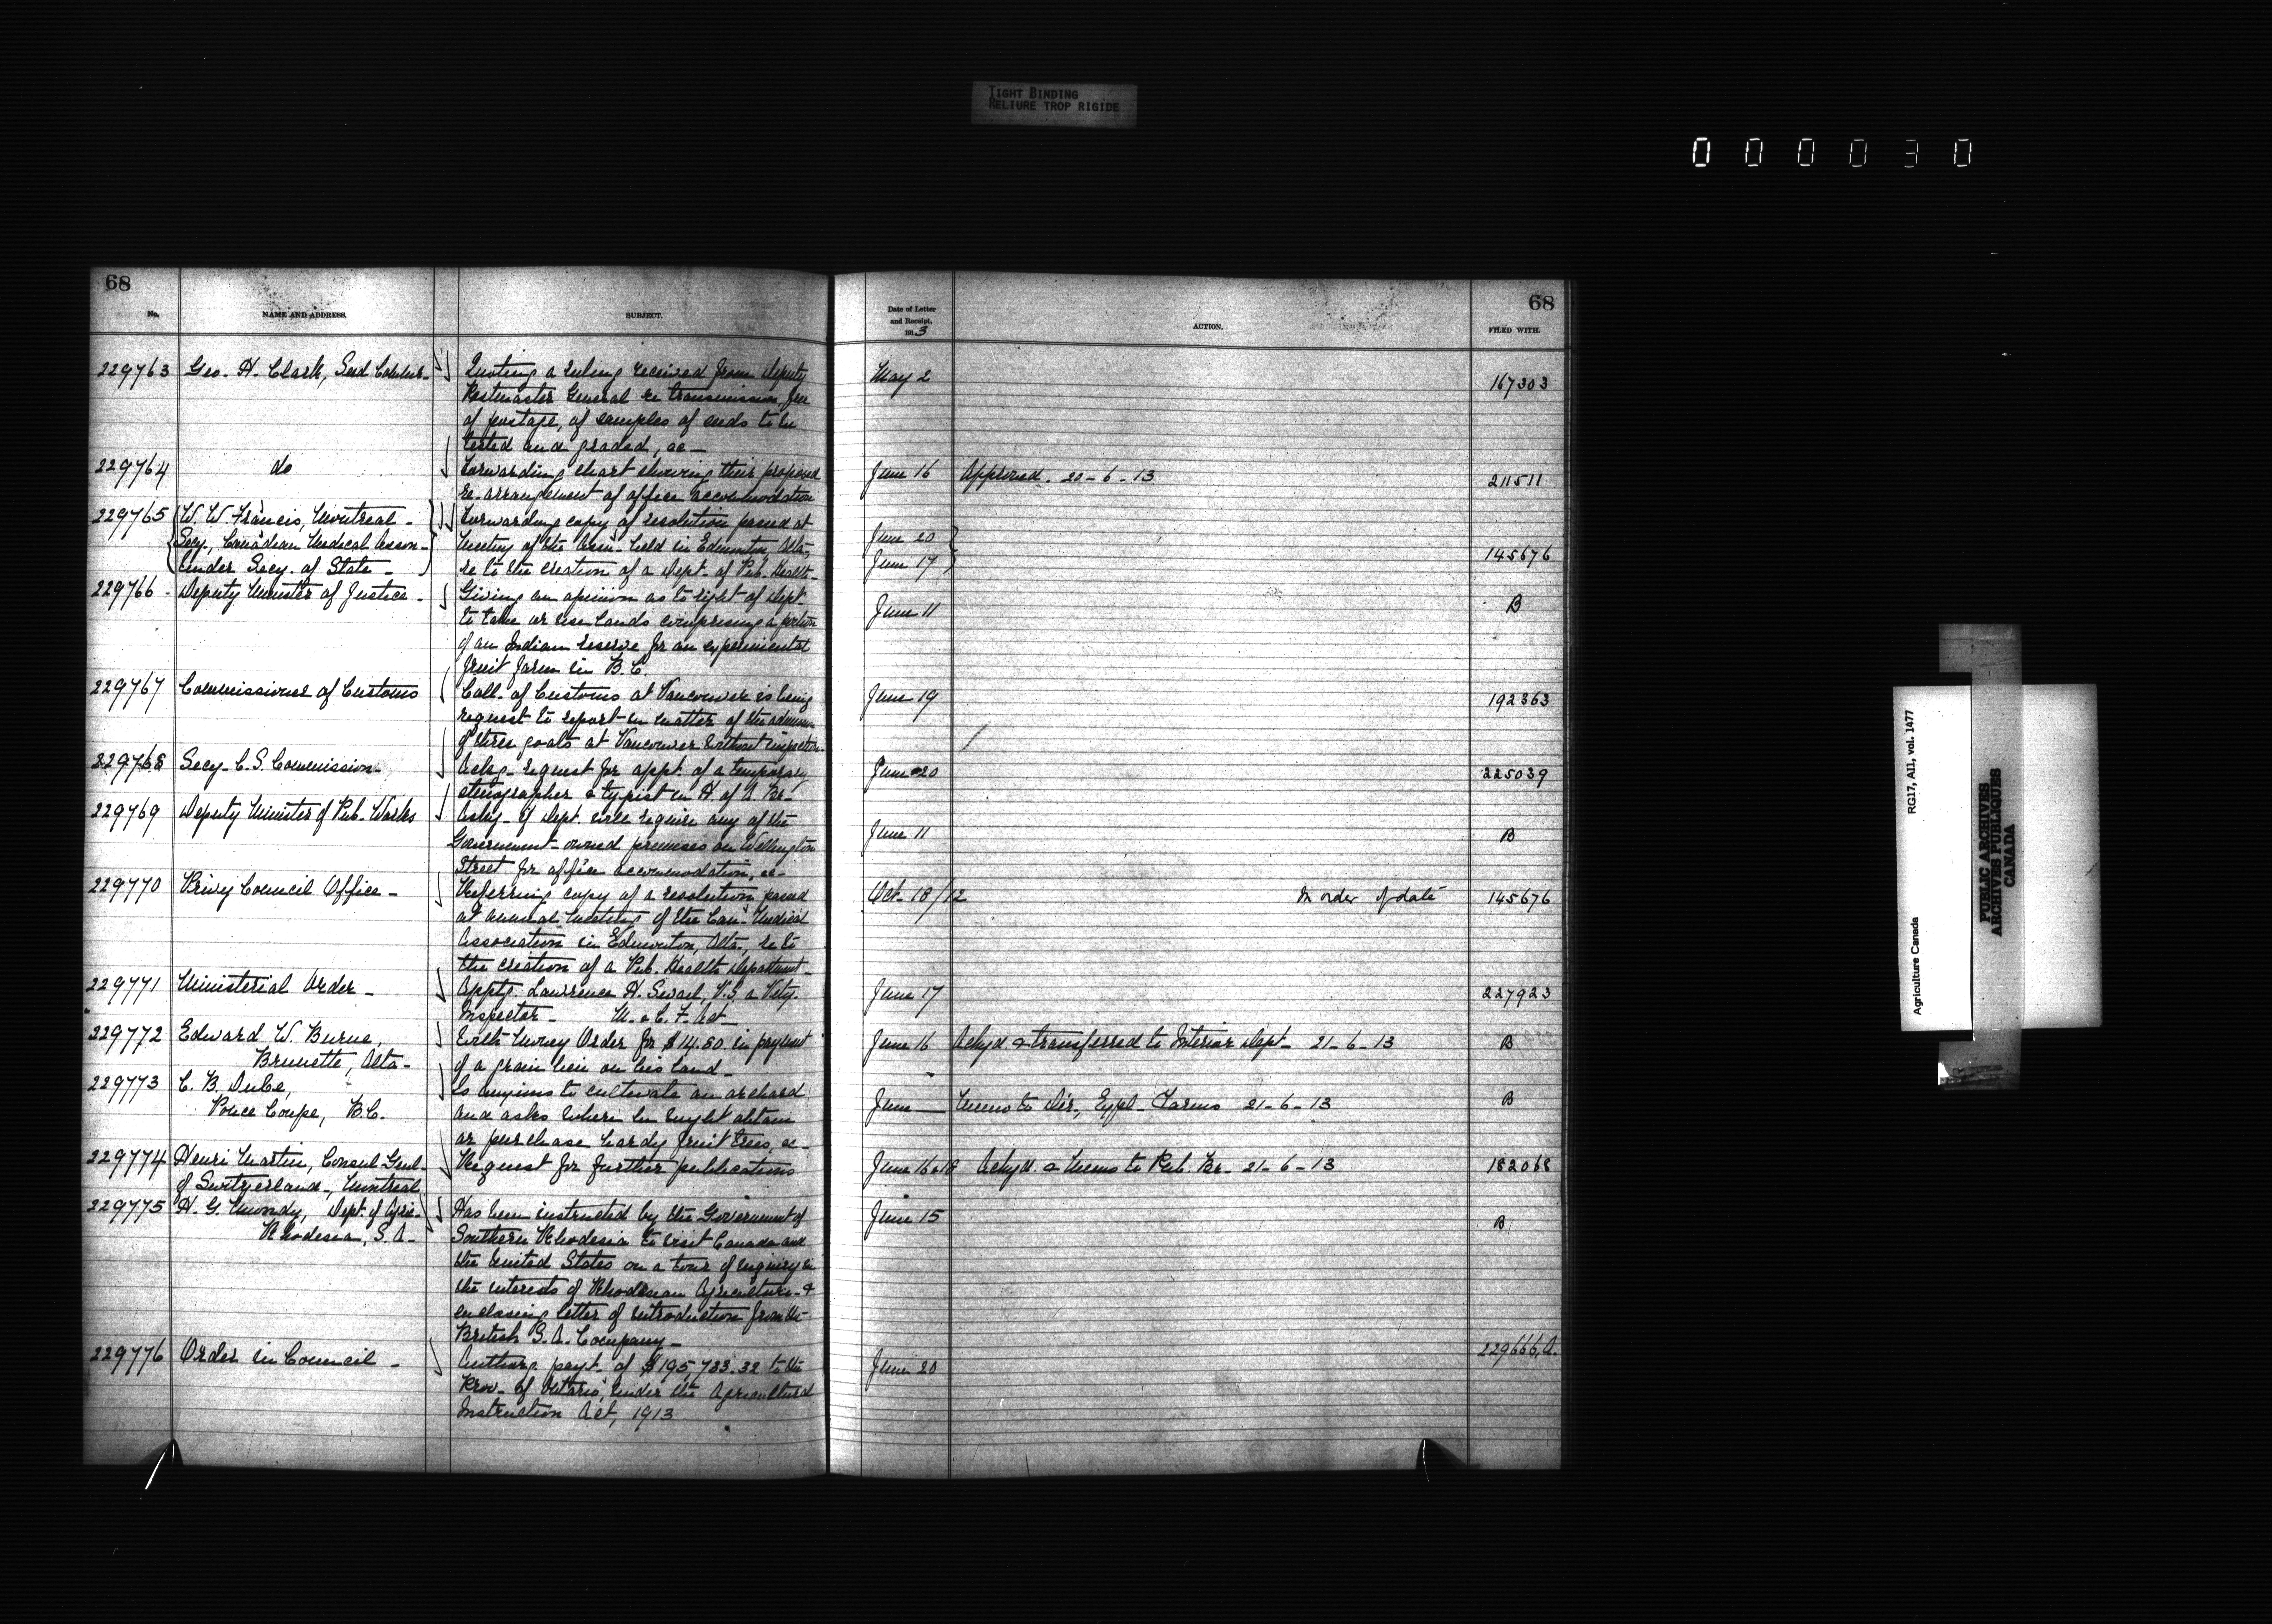 TIGHT BINDING
RELIURE TROP RIGIDE
000030
68
No.
NAME AND ADDRESS.
SUBJECT.
229763 Geo. H. Clark, Seed Commr. Quoting a ruling received from Deputy
Postmaster General re transmission, free
of postage, of samples of seeds to be
tested and graded, &c -
229764 do Forwarding chart showing their proposed
re-arrangement of office accommodation
229765 W. W. Francis, Montreal - Forwarding copy of resolution passed at
Secy., Canadian Medical Asson - Meeting of the Assn. held in Edmonton, Alta.,
Under Secy. of State - re to the creation of a Dept. of Pub. Health -
229766 - Deputy Minister of Justice - Giving an opinion as to right of Dept
to take or use lands comprising a portion
of an Indian reserve for an experimental
fruit farm in B.C.
229767 Commissioner of Customs Coll. of Customs at Vancouver is being
request to report in matter of the admn.
of three goats at Vancouver without inspection -
229768 Secy. C.S. Commission - Ackg. request for appt. of a temporary
stenographer & typist in H. of A. Br. -
229769 Deputy Minister of Pub. Works Asky. if Dept. will require any of the
Government-owned premises on Wellington
Street for office accommodation, &c -
229770 Privy Council Office - Referring copy of a resolution passed
at annual meeting of the Can. Medical
Association in Edmonton, Alta., re to
the creation of a Pub. Health Department -
229771 Ministerial Order - Apptg. Lawrence H. V.S. a Vety.
Inspector - M. & C. F. Act
229772 Edward W. Burne, With Money Order for $14.50 in payment
Brunette, Alta - of a grain lien on his land -
229773 C. B. Dube, Is anxious to cultivate an orchard
Pouce Coupe, B.C. and asks where he might obtain
or purchase hardy fruit trees, &c -
229774 Henri Martin, Consul Genl. Request for further publications
of Switzerland -, Montreal
229775 H. G. Mundy, Dept. of Agric. Has been instructed by the Government of
Rhodesia, S.A. - Southern Rhodesia to visit Canada and
the United States on a tour of enquiry in
the interests of Rhodesian Agriculture - &
enclosing letter of introduction from the
British S.A. Company -
229776 Order in Council - Authorg. payt. of $195,733.32 to the
Prov. of Ontario, under the Agricultural
Instruction Act, 1913
68
Date of Letter
and Receipt,
1913
ACTION.
FILED WITH.
May 2 167303
June 16 Approved. 20-6-13 211511
June 20
June 17 145676
June 11 B
June 19 192363
June 20 225039
June 11 B
Oct. 18/12 In order of date 145676
June 17 227923
June 16 Ackyd & transferred to Interior Dept - 21-6-13 B
June — Memo to Dir., Expl. Farms 21-6-13 B
June 16 & 18 Ackyd. & Memo to Pub. Br. - 21-6-13 182068
June 15 B
June 20 229666.A.
Agriculture Canada RG17, A11, vol. 1477
PUBLIC ARCHIVES
ARCHIVES PUBLIQUES
CANADA